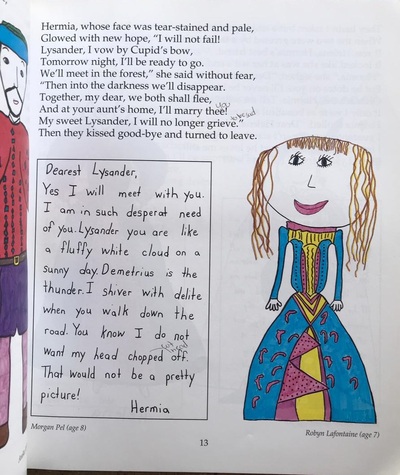 Hermia, whose face was tear-stained and pale,
Glowed with new hope, “I will not fail!
Lysander, I vow by Cupid’s bow,
Tomorrow night, I’ll be ready to go.
We’ll meet in the forest,” she said without fear,
“Then into the darkness we’ll disappear.
Together, my dear, we both shall flee,
And at your aunt’s home, I’ll marry thee!
My sweet Lysander, I will no longer grieve.”
Then they kissed good-bye and turned to leave.
Dearest Lysander,
Yes I will meet with you.
I am in such desperat need
of you. Lysander you are like
a fluffy white cloud on a
sunny day. Demetrius is the
thunder. I shiver with delite
when you walk down the
road. You know I do not
want my head chopped off.
That would not be a pretty
picture!
Hermia
Morgan Pel (age 8)
Robyn Lafontaine (age 7)
13